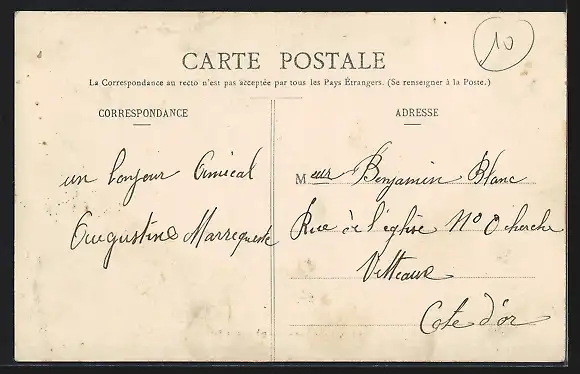 10
CARTE POSTALE
La Correspondance au recto n'est pas acceptée par tous les Pays Étrangers. (Se renseigner à la Poste.)
CORRESPONDANCE
un bonjour Amical
Augustine Marrequeste
ADRESSE
Meur Benjamin Blanc
Rue de l'eglise No cherche
Vitteaux
Cote d'or